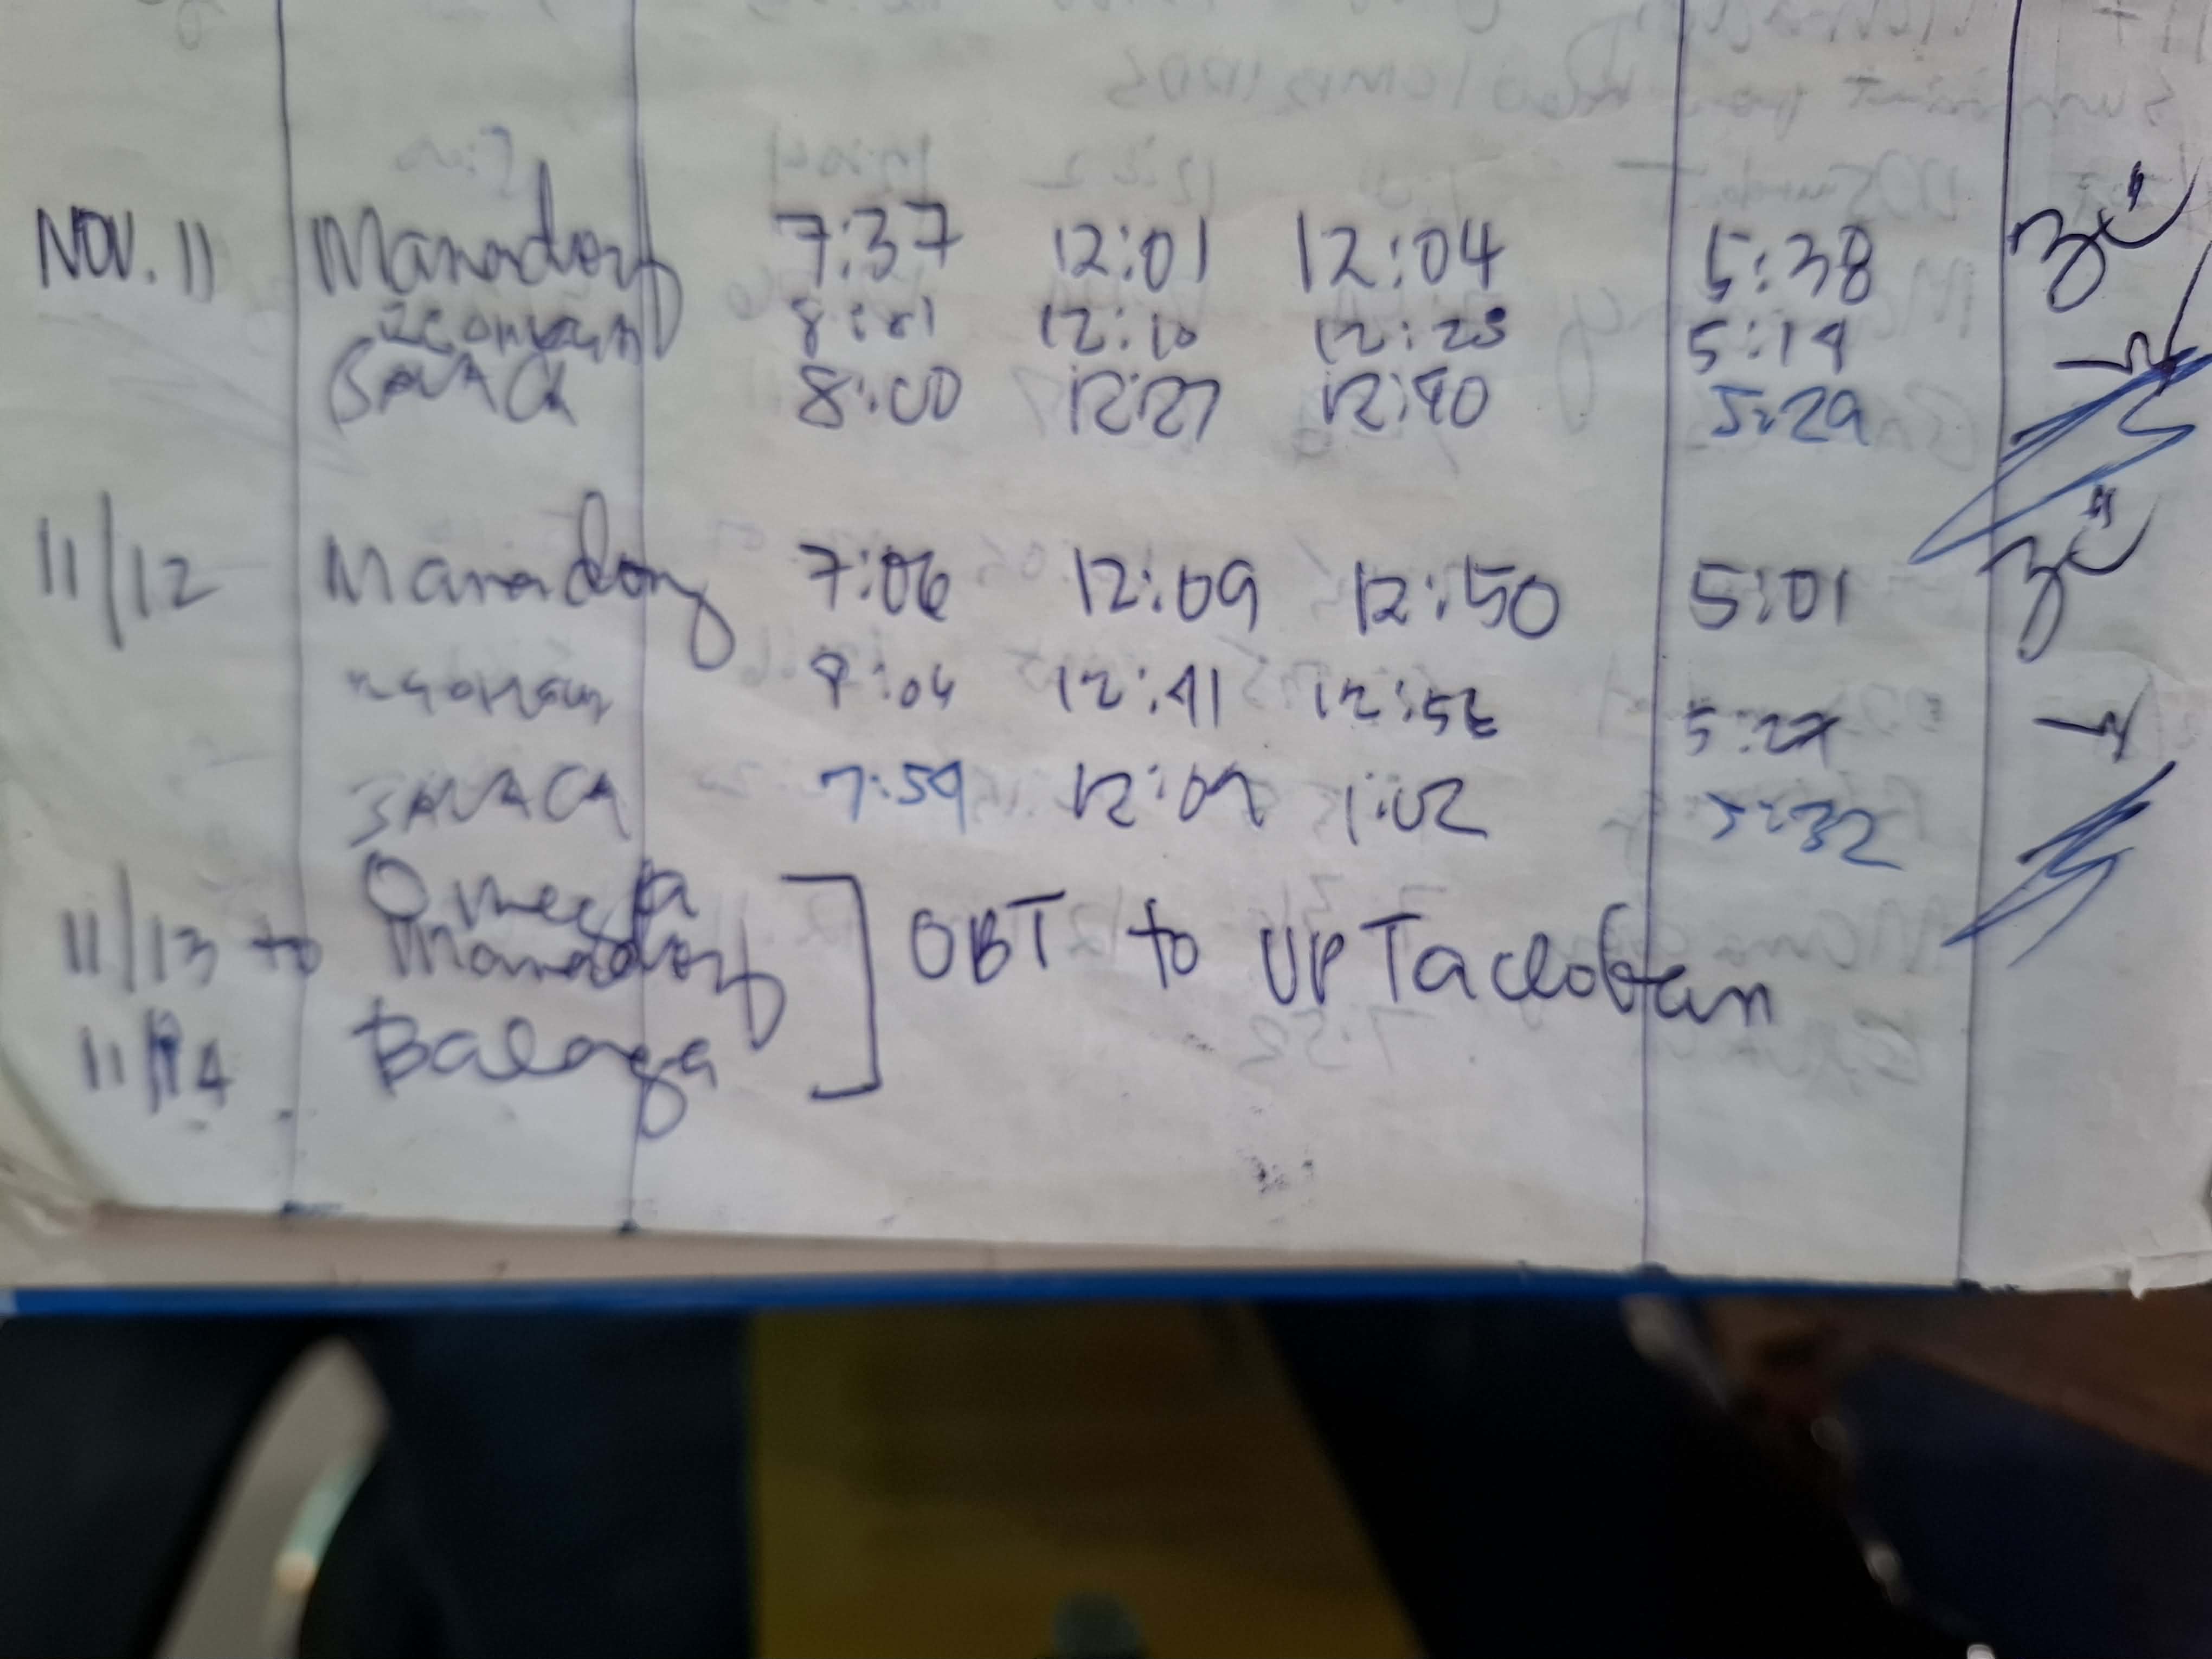 NOV. 11 Manadong 7:37 12:01 12:04 5:38
8:01 12:10 12:25 5:14
SAVACA 8:00 12:27 12:40 5:29
11/12 Manadong 7:06 12:09 12:50 5:01
8:04 12:41 12:56
SAVACA 7:59 12:09 1:02 5:32
Omega
11/13 to Manadong OBT to UP Tacloban
11/14 Balaga